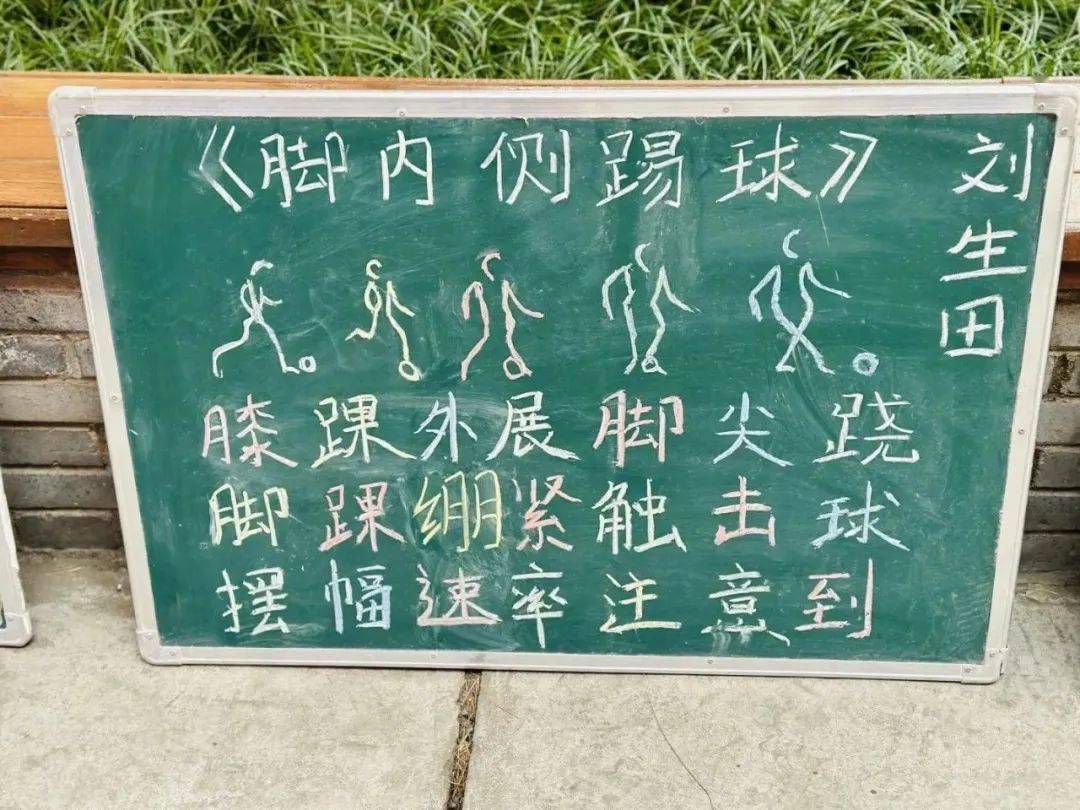 《脚内侧踢球》
刘生田
膝踝外展脚尖跷
脚踝绷紧触击球
摆幅速率注意到